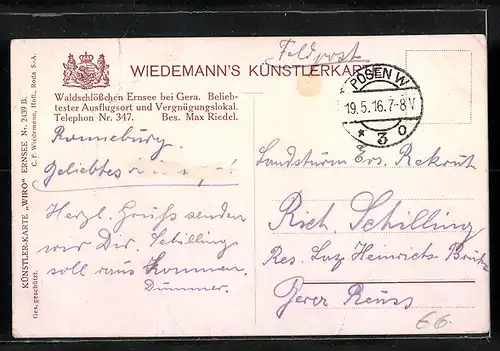 Feldpost
WIEDEMANN'S KÜNSTLERKARTE
POSEN W
19.5.16.7-8V
* 3 o
Waldschlößchen Ernsee bei Gera. Belieb-
tester Ausflugsort und Vergnügungslokal.
Telephon Nr. 347. Bes. Max Riedel.
KÜNSTLER-KARTE „WIRO" ERNSEE Nr. 2439 B.
C. F. Wiedemann, Hofl., Roda S.-A.
Ges. geschützt.
Ronneburg.
Geliebtes
Herzl. Gruß senden
wir Dir. Schilling
soll raus kommen.
Dummer.
Landsturm Ers. Rekrut
Rich. Schilling
Res. Laz Heinrichs Brücke
Gera Reuss
€6.